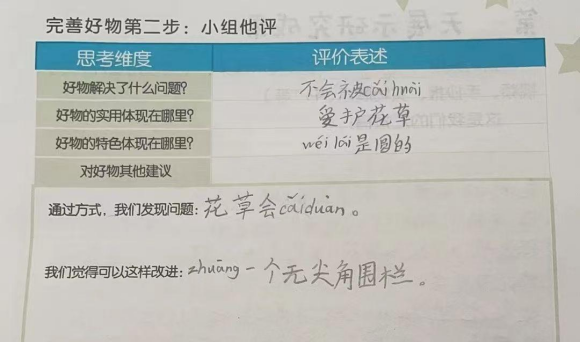 完善好物第二步：小组他评
思考维度 评价表述
好物解决了什么问题? 不会被cǎi huài
好物的实用体现在哪里? 爱护花草
好物的特色体现在哪里? wéi lái是圆的
对好物其他建议
通过方式，我们发现问题: 花草会cǎiduàn。
我们觉得可以这样改进: zhuāng一个无尖角围栏。